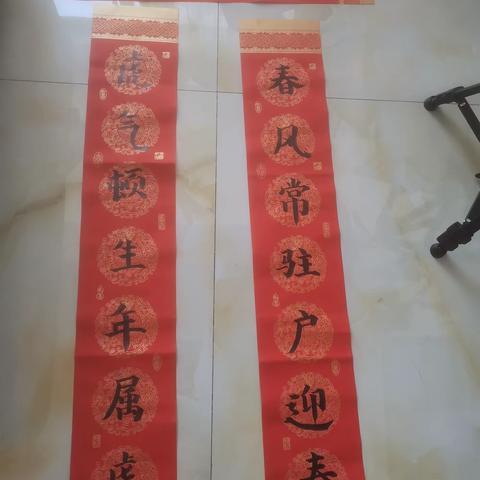 虎气顿生年属虎
春风常驻户迎春